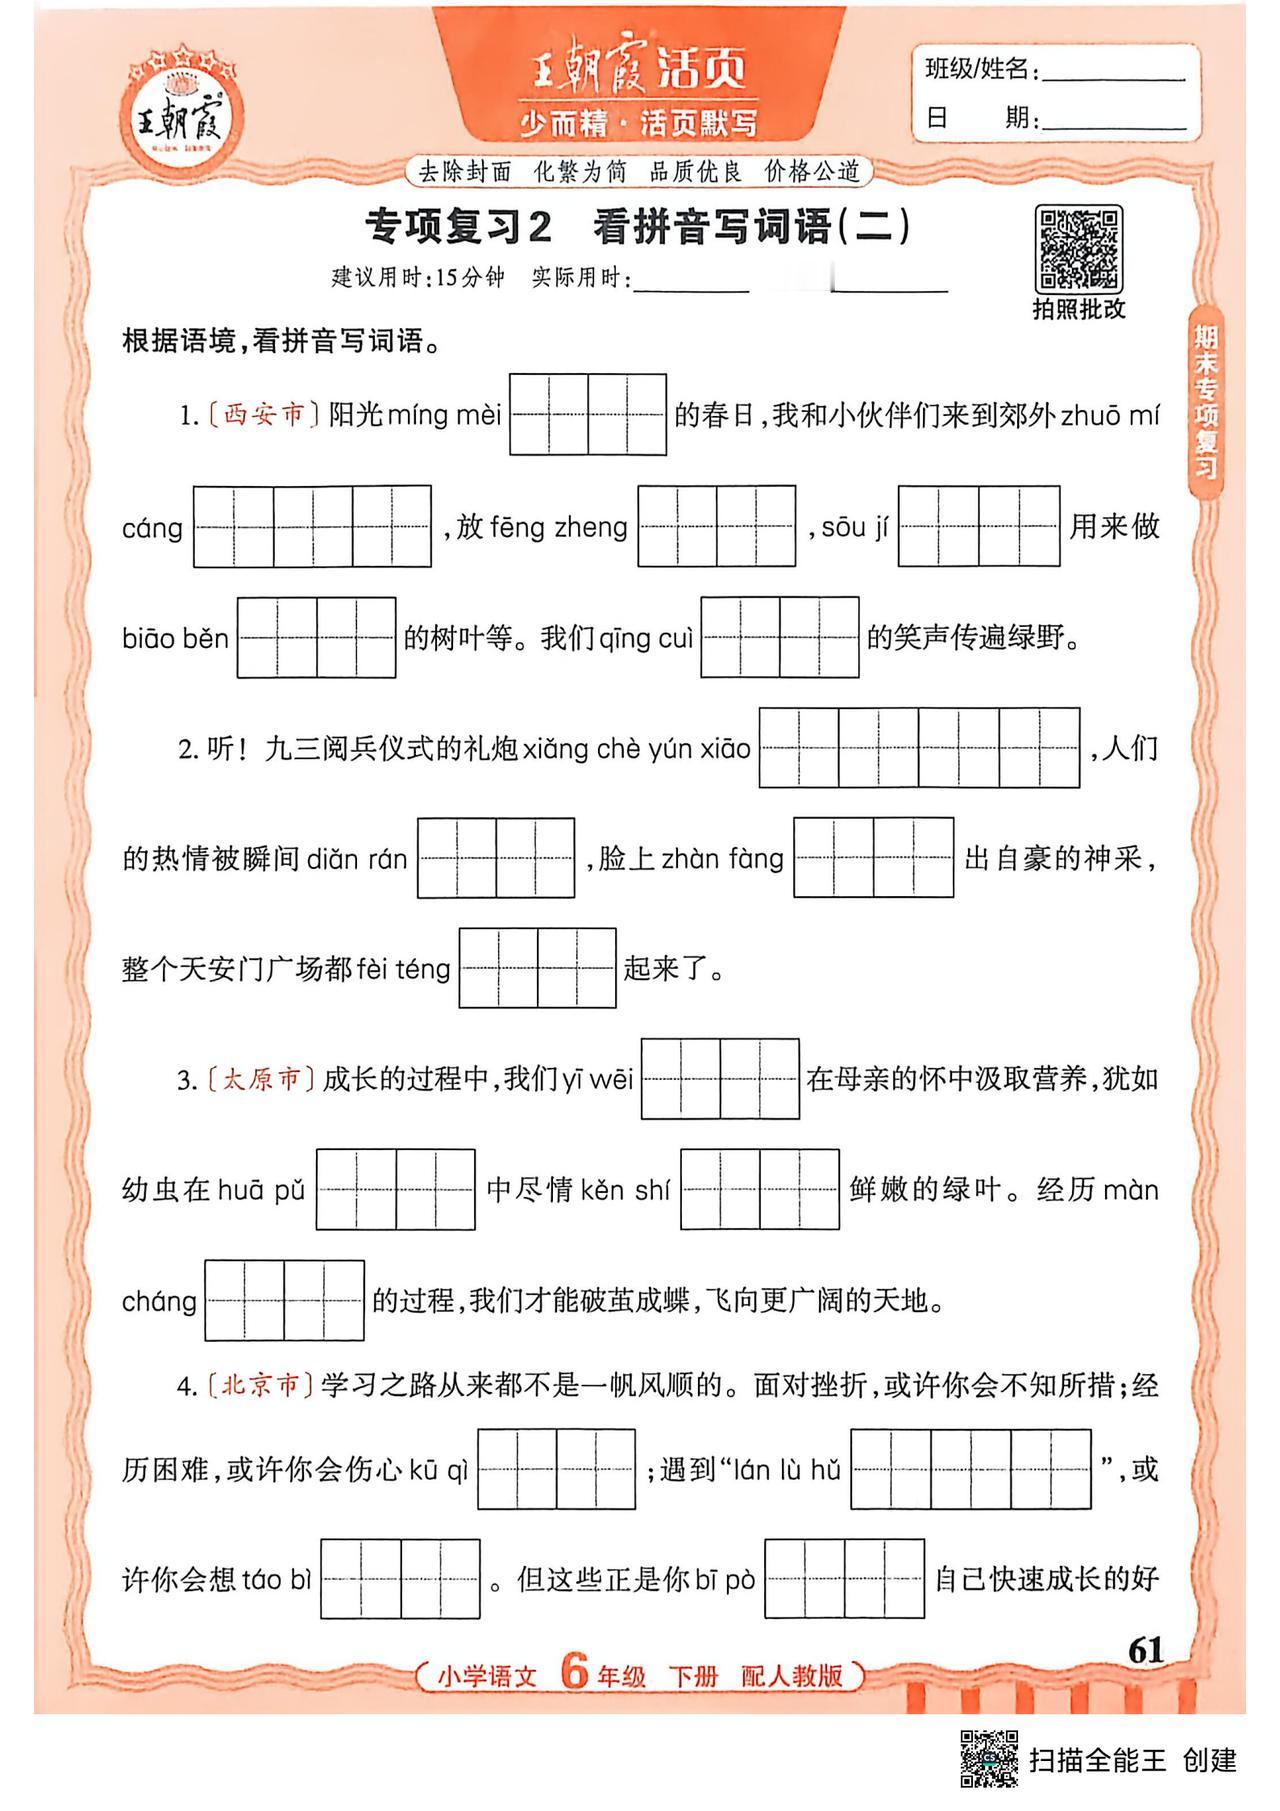 王朝霞
王朝霞活页
少而精·活页默写
班级/姓名:
日 期:
去除封面 化繁为简 品质优良 价格公道
专项复习2 看拼音写词语(二)
建议用时:15分钟 实际用时:
拍照批改
期末专项复习
根据语境,看拼音写词语。
1.〔西安市〕阳光míng mèi 的春日,我和小伙伴们来到郊外zhuō mí
cáng ,放fēng zheng ,sōu jí 用来做
biāo běn 的树叶等。我们qīng cuì 的笑声传遍绿野。
2. 听!九三阅兵仪式的礼炮xiǎng chè yún xiāo ,人们
的热情被瞬间diǎn rán ,脸上zhàn fàng 出自豪的神采,
整个天安门广场都fèi téng 起来了。
3.〔太原市〕成长的过程中,我们yī wēi 在母亲的怀中汲取营养,犹如
幼虫在huā pǔ 中尽情kěn shí 鲜嫩的绿叶。经历màn
cháng 的过程,我们才能破茧成蝶,飞向更广阔的天地。
4.〔北京市〕学习之路从来都不是一帆风顺的。面对挫折,或许你会不知所措;经
历困难,或许你会伤心kū qì ;遇到“lán lù hǔ ”,或
许你会想táo bì 。但这些正是你bī pò 自己快速成长的好
61
小学语文 6年级 下册 配人教版
CS
扫描全能王 创建